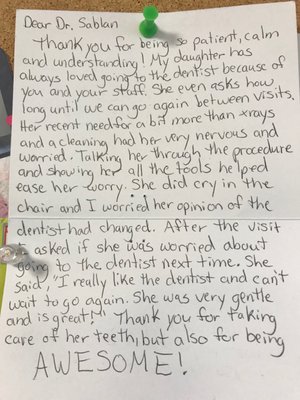 Dear Dr. Sablan
Thank you for being so patient, calm
and understanding! My daughter has
always loved going to the dentist because of
you and your staff. She even asks how
long until we can go again between visits.
Her recent need for a bit more than xrays
and a cleaning had her very nervous and
worried. Talking her through the procedure
and showing her all the tools helped
ease her worry. She did cry in the
chair and I worried her opinion of the
dentist had changed. After the visit
asked if she was worried about
going to the dentist next time. She
said, "I really like the dentist and can't
wait to go again. She was very gentle
and is great!" Thank you for taking
care of her teeth, but also for being
AWESOME!